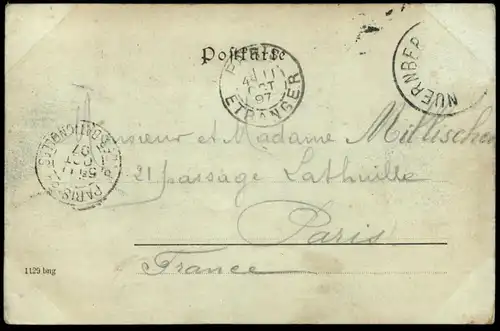 Postkarte
PARIS
4E 11
OCT
97
ETRANGER
NUERNBER
PARIS
5E 11
OCT
97
DISTRIBUTION
Monsieur et Madame Millischer
21 passage Lathuille
Paris
France
1129 bmg